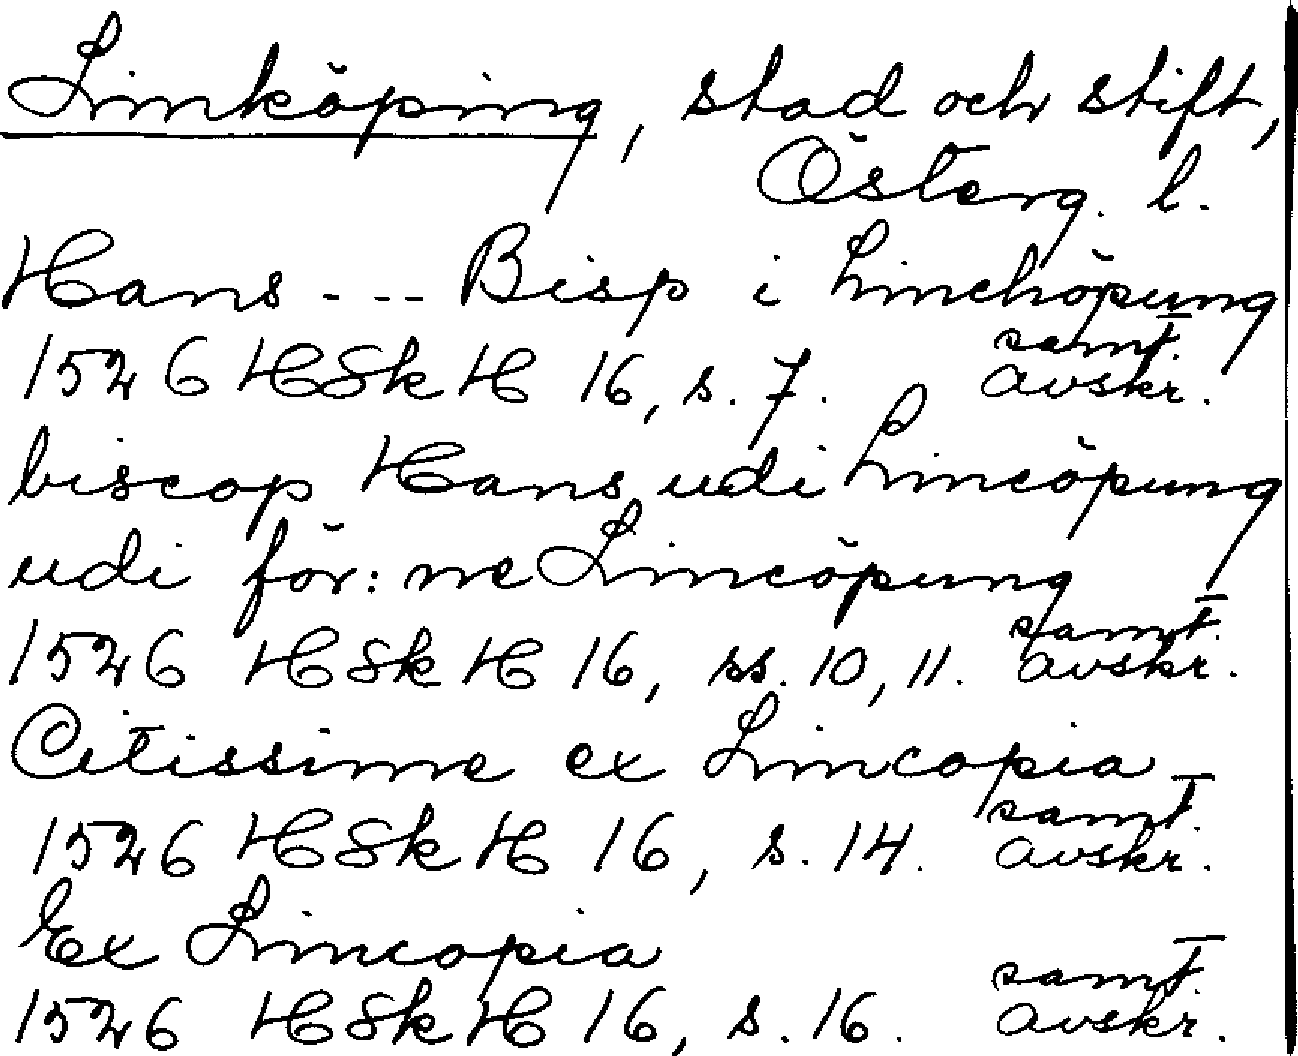 Linköping, stad och stift,
Österg. l.
Hans --- Bisp i Linchöpung
1526 HSkH 16, s. 7. samt. avskr.
biscop Hans udi Lincöpung
udi för:ne Lincöpung
1526 HSkH 16, ss. 10, 11. samt. avskr.
Citissime ex Lincopia
1526 HSkH 16, s. 14. samt. avskr.
Ex Lincopia
1526 HSkH 16, s. 16. samt. avskr.